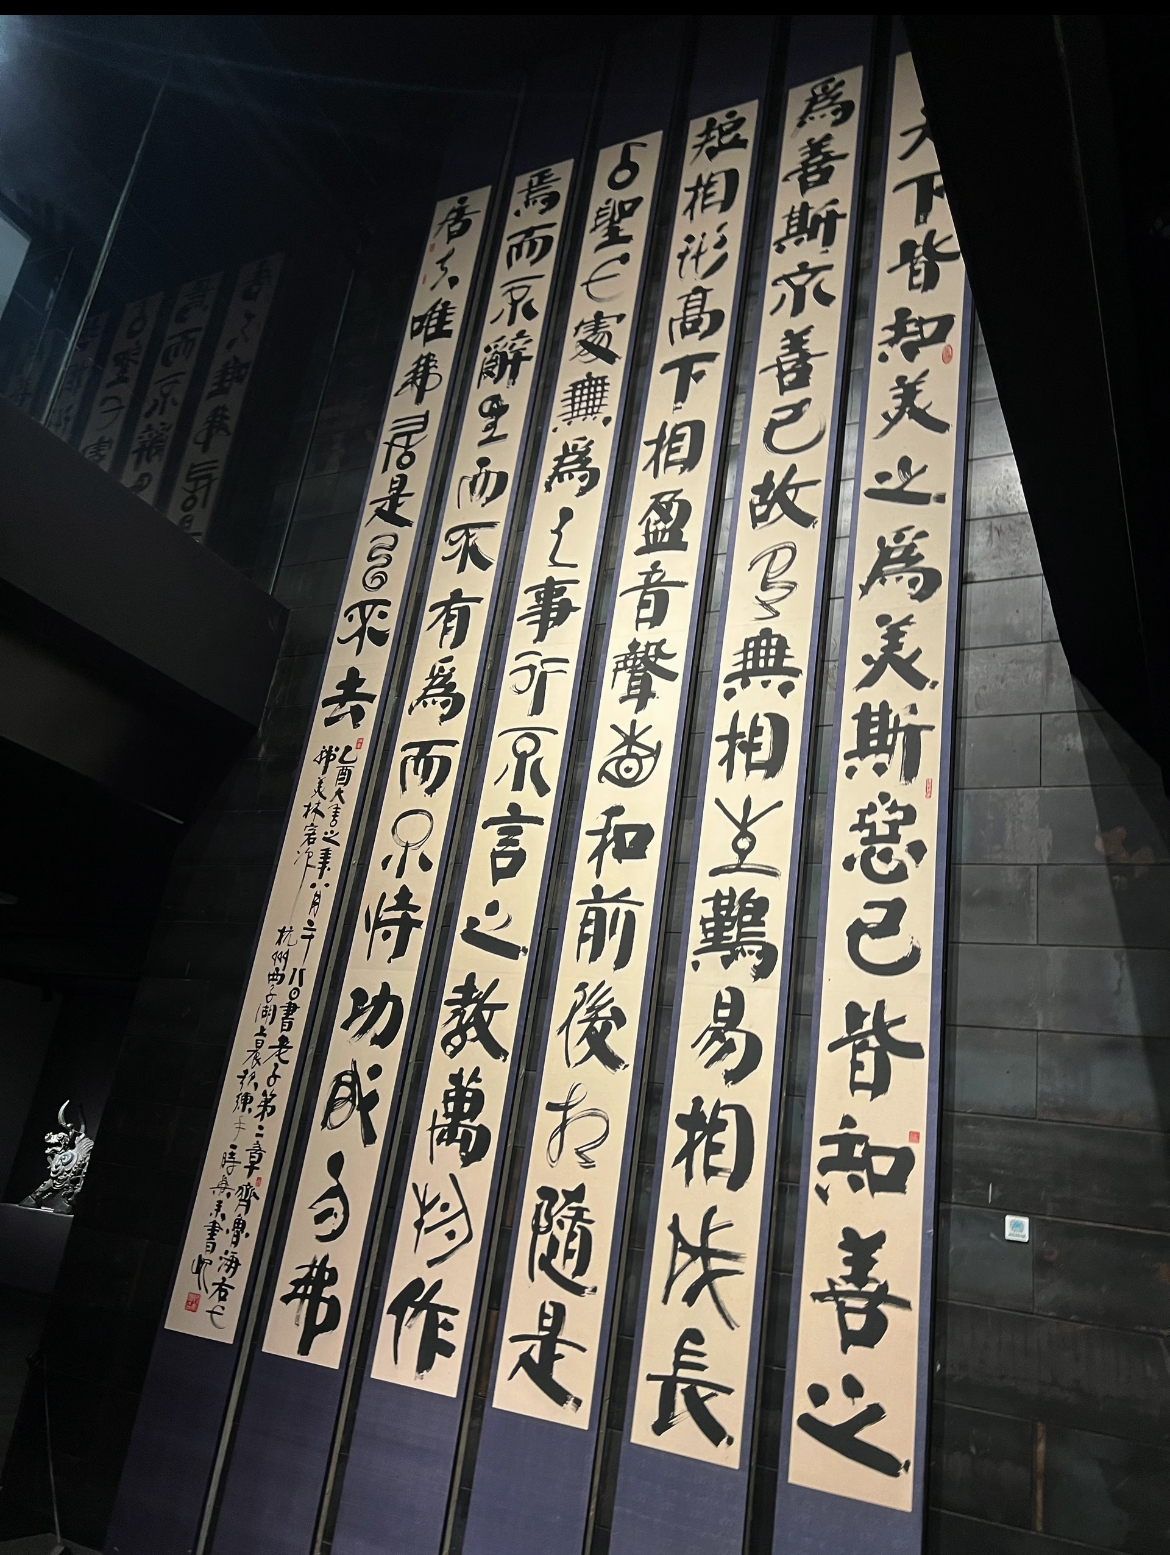 天下皆知美之為美斯惡已皆知善之
為善斯不善已故有無相生難易相成長
短相形高下相盈音聲相和前後相隨是
以聖人處無為之事行不言之教萬物作
焉而不辭生而不有為而不恃功成而弗
居夫唯弗居是以不去
乙酉 之 八月二十八日書老子第二章齊魯海右
韓美林 杭州西子湖 晨 書